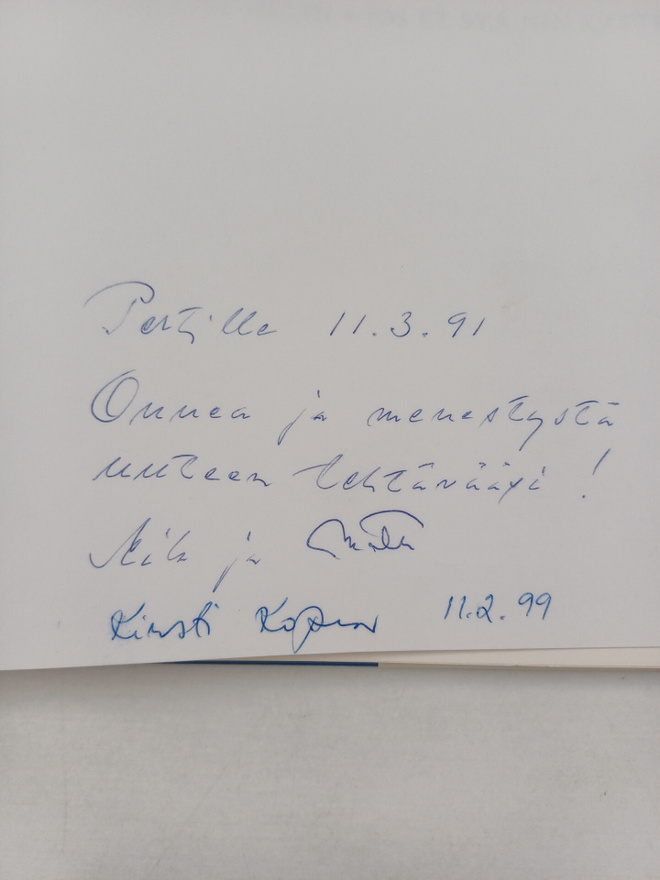 Pertille 11.3.91
Onnea ja menestystä
uuteen tehtävääsi!
ja
Kirsti 11.2.99